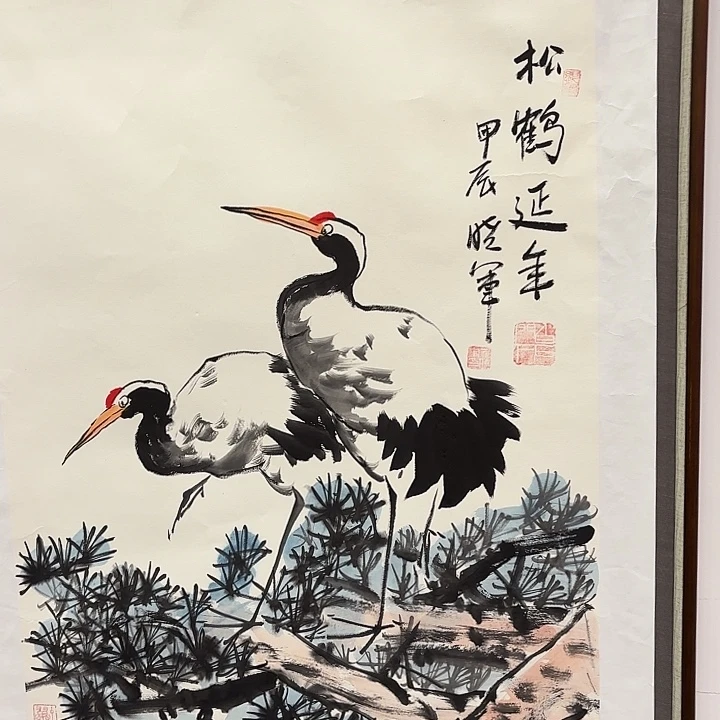 松鹤延年
甲辰晓军